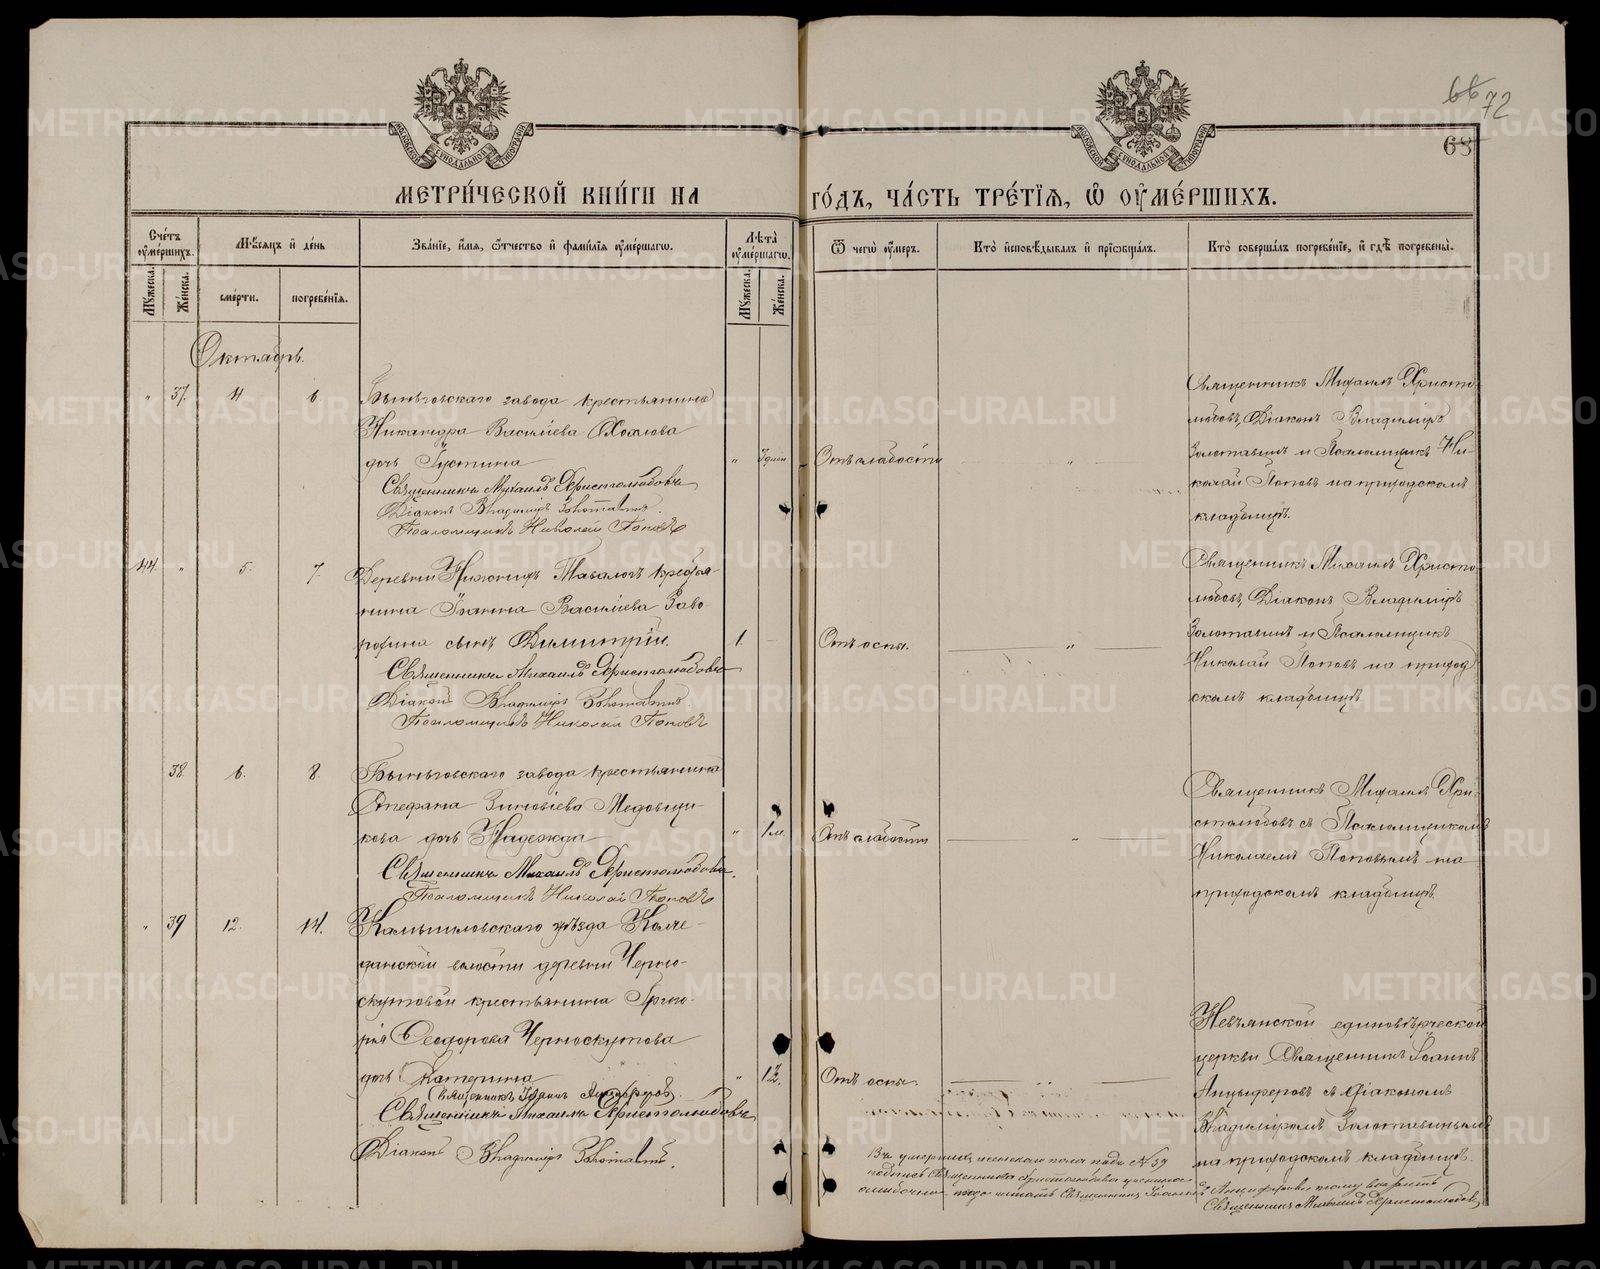 66 72
68
МОСКОВСКОЙ СѴНОДАЛЬНОЙ ТИПОГРАФІИ
МОСКОВСКОЙ СѴНОДАЛЬНОЙ ТИПОГРАФІИ
МЕТРИ́ЧЕСКОЙ КНИ́ГИ НА
ГО́ДЪ, ЧА́СТЬ ТРЕ́ТІѦ, Ѡ҆ ОУ҆МЕ́РШИХЪ.
Сче́тъ оу҆ме́ршихъ.
Мꙋ́жеска.
Же́нска.
Мѣ́сѧцъ и҆ де́нь
сме́рти.
погребе́нїѧ.
Зва́нїе, и҆́мѧ, ѻ҆́тчество и҆ фами́лїѧ оу҆ме́ршагѡ.
Лѣ́та оу҆ме́ршагѡ.
Мꙋ́жеска.
Же́нска.
Ѿ чегѡ̀ оу҆́меръ.
Кто̀ и҆сповѣ́дывалъ и҆ прїѡбща́лъ.
Кто̀ соверша́лъ погребе́нїе, и҆ гдѣ̀ погребены̀.
Октябрь.
" 37. 4 6
Быньговскаго завода крестьянина
Никандра Васильева Хохлова
дочь Іустина " 3 дня Отъ слабости "
Священникъ Михаилъ Христолюбовъ
Діаконъ Владиміръ Золотавинъ.
Псаломщикъ Николай Поповъ
Священникъ Михаилъ Христо-
любовъ, Діаконъ Владиміръ
Золотавинъ и Псаломщикъ Ни-
колай Поповъ на приходскомъ
кладбищѣ.
44. " 5. 7.
Деревни Нижнихъ Тавологъ крестья-
нина Іоанна Васильева Заво
рохина сынъ Димитрій. 1. Отъ оспы. "
Священникъ Михаилъ Христолюбовъ
Діаконъ Владиміръ Золотавинъ.
Псаломщикъ Николай Поповъ
Священникъ Михаилъ Христо-
любовъ, Діаконъ Владиміръ
Золотавинъ и Псаломщикъ
Николай Поповъ на приход
скомъ кладбищѣ
38. 6. 8.
Быньговскаго завода крестьянина
Стефана Зиновіева Медовщи-
кова дочь Надежда " 1 м. Отъ слабости "
Священникъ Михаилъ Христолюбовъ.
Псаломщикъ Николай Поповъ
Священникъ Михаилъ Хри-
столюбовъ съ Псаломщикомъ
Николаемъ Поповымъ на
приходскомъ кладбищѣ.
" 39 12. 14.
Камышловскаго уѣзда Колче-
данской волости деревни Черно-
скутовой крестьянина Григо-
рія Ѳеодорова Черноскутова
дочь Катерина " Отъ оспы.
Священникъ Іоаннъ Анцыферовъ.
Священникъ Михаилъ Христолюбовъ
Діаконъ Владиміръ Золотавинъ.
Невьянской единовѣрческой
церкви Священникъ Іоаннъ
Анцыферовъ съ діакономъ
Владиміромъ Золотавинымъ
на приходскомъ кладбищѣ.
Въ умершихъ женскаго пола подъ № 39
подпись Священника Христолюбова
ошибочно, надо читать Священникъ Іоаннъ Анцыферовъ
Священникъ Михаилъ Христолюбовъ
METRIKI.GASO-URAL.RU